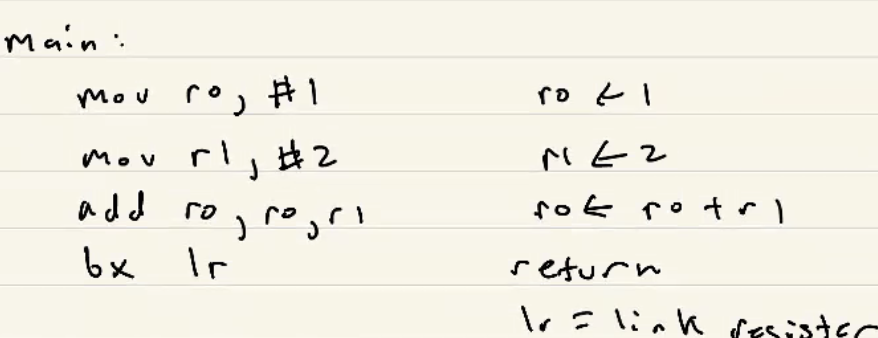 main:
mov r0, #1 r0 ← 1
mov r1, #2 r1 ← 2
add r0, r0, r1 r0 ← r0 + r1
bx lr return
lr = link register